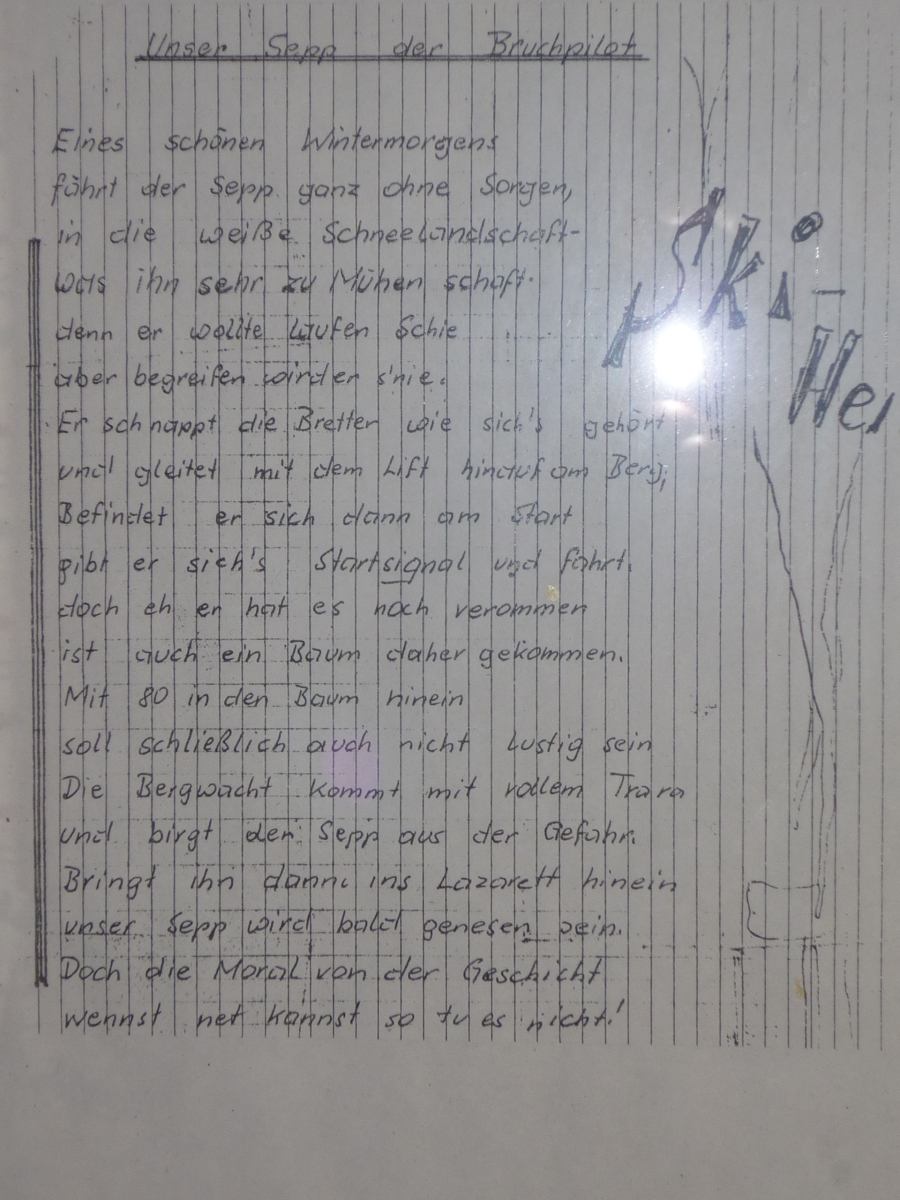 Unser Sepp der Bruchpilot
Eines schönen Wintermorgens
fährt der Sepp ganz ohne Sorgen,
in die weiße Schneelandschaft-
was ihn sehr zu Mühen schaft.
denn er wollte laufen Schie
aber begreifen wird er s'nie.
Er schnappt die Bretter wie sich's gehört
und gleitet mit dem Lift hinauf am Berg,
Befindet er sich dann am Start
gibt er sich's Startsignal und fährt.
doch eh er hat es noch
ist auch ein Baum daher gekommen.
Mit 80 in den Baum hinein
soll schließlich auch nicht lustig sein
Die Bergwacht kommt mit vollem Trara
und birgt den Sepp aus der Gefahr.
Bringt ihn dann ins Lazarett hinein
unser Sepp wird bald genesen sein.
Doch die Moral von der Geschicht
wennst net kannst so tu es nicht!
Ski-
Hei